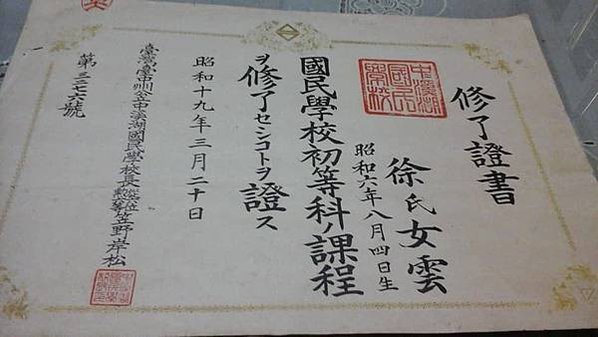 修了證書
中溪湖
國民
學校
徐氏女雲
昭和六年八月四日生
國民學校初等科ノ課程
ヲ修了セシコトヲ證ス
昭和十九年三月二十日
臺灣臺中州公立中溪湖國民學校長 笠野岸松
第三七六號